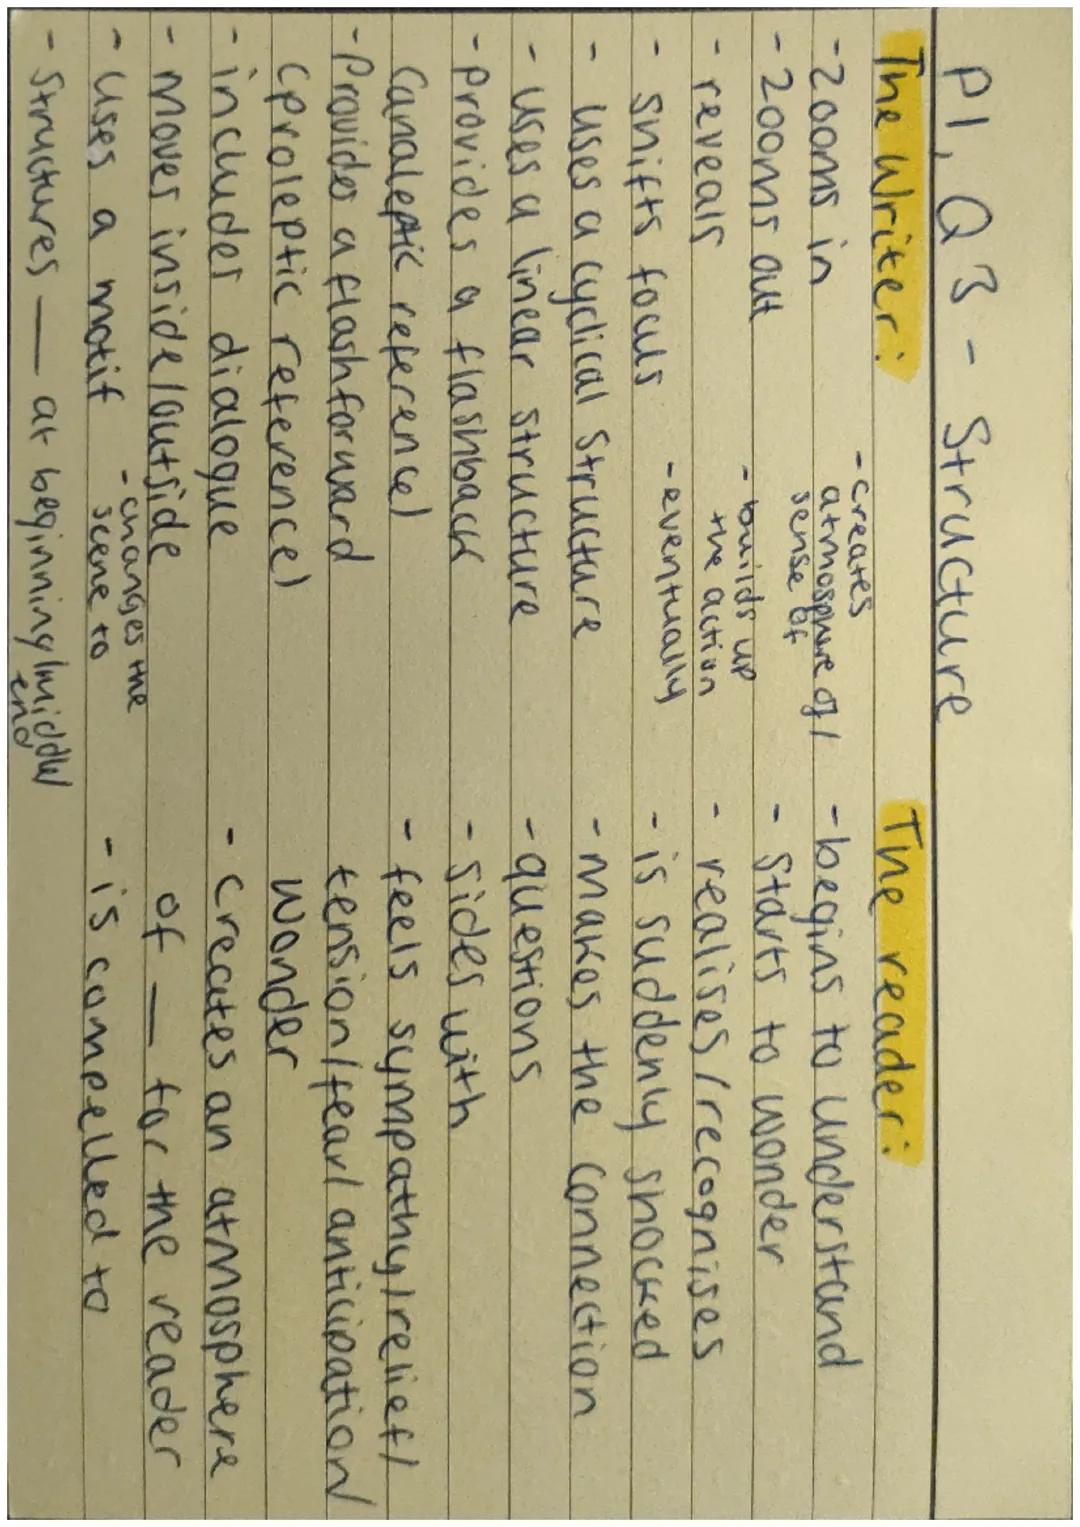 P1, Q3 - Structure
The writer:
- zooms in
- zooms out
- reveals
- shifts focus
- uses a cyclical structure
- uses a linear structure
- provides a flashback
(analeptic reference)
- Provides a flashforward
(proleptic reference)
- includes dialogue
- moves inside/outside
- uses a motif
- structures — at beginning/middle/
end
- creates
atmosphere of/
sense of
- builds up
the action
- eventually
- changes the
scene to
The reader:
- begins to understand
- starts to wonder
- realises/recognises
- is suddenly shocked
- makes the connection
- questions
- sides with
- feels sympathy/relief/
tension/fear/anticipation/
wonder
- creates an atmosphere
of — for the reader
- is compelled to